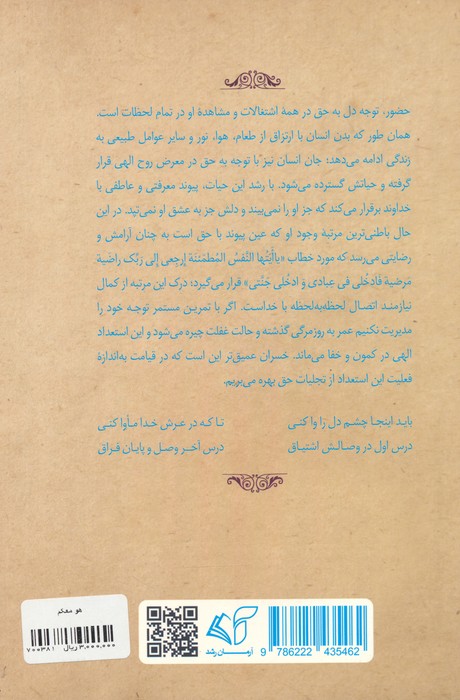 حضور، توجه دل به حق در همهٔ اشتغالات و مشاهدهٔ او در تمام لحظات است.
همان طور که بدن انسان با ارتزاق از طعام، هوا، نور و سایر عوامل طبیعی به
زندگی ادامه می‌دهد؛ جان انسان نیز با توجه به حق در معرض روح الهی قرار
گرفته و حیاتش گسترده می‌شود. با رشد این حیات، پیوند معرفتی و عاطفی با
خداوند برقرار می‌کند که جز او را نمی‌بیند و دلش جز به عشق او نمی‌تپد. در این
حال باطنی‌ترین مرتبهٔ وجود او که عین پیوند با حق است به چنان آرامش و
رضایتی می‌رسد که مورد خطاب «یا أَیَّتُهَا النَّفْسُ المُطمَئنَةُ إرجِعی إلی رَبّک راضیة
مَرضیة فَادخُلی فی عِبادی وَ ادخُلی جَنَّتی» قرار می‌گیرد؛ درک این مرتبه از کمال
نیازمند اتصال لحظه‌به‌لحظه با خداست. اگر با تمرین مستمر توجه خود را
مدیریت نکنیم عمر به روزمرگی گذشته و حالت غفلت چیره می‌شود و این استعداد
الهی در کمون و خفا می‌ماند. خسران عمیق‌تر این است که در قیامت به‌اندازهٔ
فعلیت این استعداد از تجلیات حق بهره می‌بریم.
باید اینجا چشم دل را وا کنی تا که در عرش خدا مأوا کنی
درس اول در وصالش اشتیاق درس آخر وصل و پایان فراق
هو معکم
700381 3,000,000 ریال
آرمان رشد
9 786222 435462